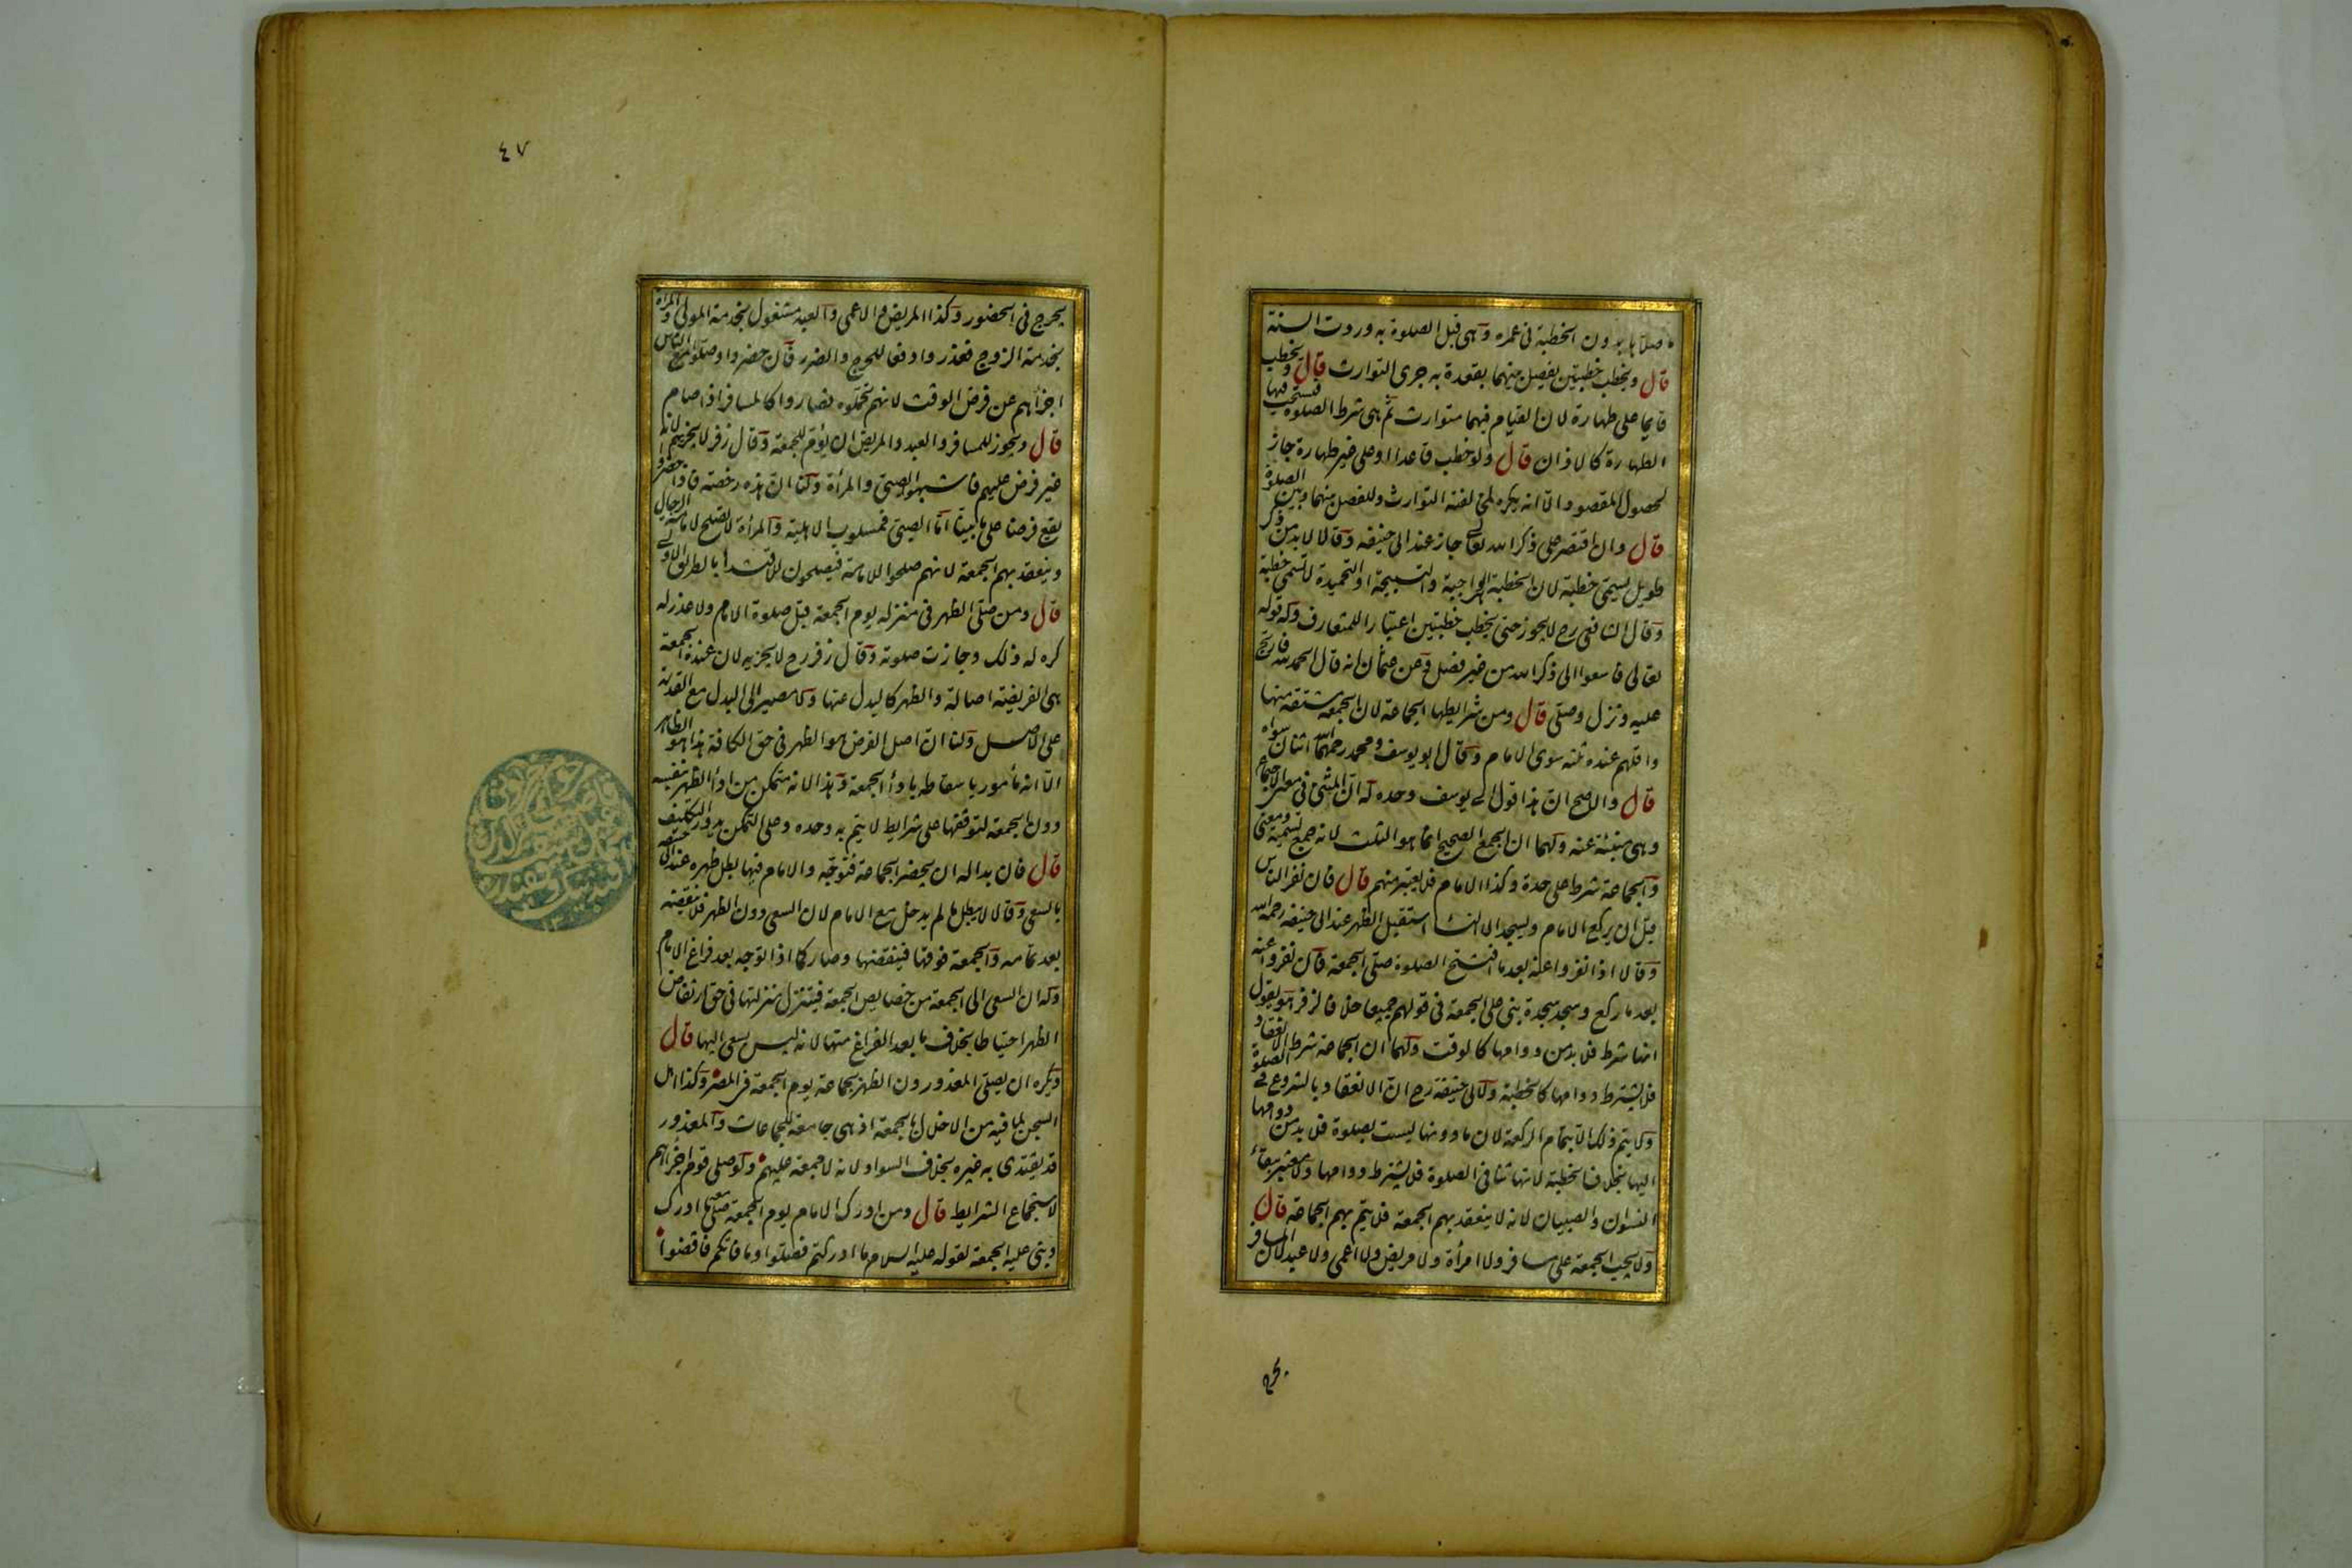 ما صلاها بدون الخطبة فى عمره وهى قبل الصلوة به وردت السنة
قال ويخطب خطبتين يفصل بينهما بقعدة به جرى التوارث قال ويخطب
قايما على طهارة لان القيام فيهما متوارث ثم هى شرط الصلوة فيستحب فيها
الطهارة كالاذان قال ولو خطب قاعدا او على غير طهارة جاز
لحصول المقصود الا انه يكره لمخالفته التوارث وللفصل بينهما وبين الصلوة
قال وان اقتصر على ذكر الله تعالى جاز عند ابى حنيفه وقالا لا بد من ذكر
طويل يسمى خطبة لان الخطبة الواجبة والتسبيحة او التحميدة لا تسمى خطبة
وقال الشافعى رح لا يجوز حتى يخطب خطبتين اعتبارا للمتعارف وله قوله
تعالى فاسعوا الى ذكر الله من غير فصل وعن عثمان انه قال الحمد لله فارتج
عليه ونزل وصلى قال ومن شرايطها الجماعة لان الجمعة مشتقة منها
واقلهم عنده ثلثه سوى الامام وقال ابو يوسف ومحمد رحمهما الله اثنان سواه
قال والاصح ان هذا قول ابى يوسف وحده له ان فى المثنى معنى الاجتماع
وهى منبئة عنه ولهما ان الجمع الصحيح انما هو الثلث لانه جمع تسمية ومعنى
والجماعة شرط على حدة وكذا الامام فلا يعتبر منهم قال فان نفر الناس
قبل ان يركع الامام ويسجد الا النساء استقبل الظهر عند ابى حنيفه رحمه الله
وقالا اذا نفروا عنه بعد ما افتتح الصلوة صلى الجمعة فان نفروا عنه
بعد ما ركع وسجد سجدة بنى على الجمعة فى قولهم جميعا خلافا لزفر هو يقول
انها شرط فلا بد من دوامها كالوقت ولهما ان الجماعة شرط الانعقاد
فلا يشترط دوامها كالخطبة ولابى حنيفة رح ان الانعقاد بالشروع فى الصلوة
ولا يتم ذلك الا بتمام الركعة لان ما دونها ليست بصلوة فلا بد من دوامها
اليها بخلاف الخطبة لانها تنافى الصلوة فلا يشترط دوامها ولا معتبر ببقاء
النسوان والصبيان لانه لا ينعقد بهم الجمعة فلا يتم بهم الجماعة قال
ولا يجب الجمعة على مسافر ولا امرأة ولا مريض ولا اعمى ولا عبد لان المسافر
يحرج
٤٧
يحرج فى الحضور وكذا المريض والاعمى والعبد مشغول بخدمة المولى والمرأة
بخدمة الزوج فعذروا دفعا للحرج والضرر فان حضروا وصلوا مع الناس
اجزأهم عن فرض الوقت لانهم تحملوه فصاروا كالمسافر اذا صام
قال ويجوز للمسافر والعبد والمريض ان يؤم للجمعة وقال زفر لا يجزيهم لانه
غير فرض عليهم فاشبهوا الصبى والمرأة ولنا ان هذه رخصة فاذا حضروا
يقع فرضا على ما بينا اما الصبى فمسلوب الاهلية والمرأة لا تصلح لامامة الرجال
وينعقد بهم الجمعة لانهم صلحوا للامامة فيصلحون للاقتداء بالطريق الاولى
قال ومن صلى الظهر فى منزله يوم الجمعة قبل صلوة الامام ولا عذر له
كره له ذلك وجازت صلوته وقال زفر رح لا يجزيه لان عنده الجمعة
هى الفريضة اصالة والظهر كالبدل عنها ولا مصير الى البدل مع القدرة
على الاصل ولنا ان اصل الفرض هو الظهر فى حق الكافة هذا هو الظاهر
الا انه مأمور باسقاطه باداء الجمعة وهذا لانه متمكن من اداء الظهر بنفسه
دون الجمعة لتوقفها على شرايط لا يتم به وحده وعلى التمكن يدور التكليف
قال فان بدا له ان يحضر الجماعة فتوجه والامام فيها بطل ظهره عند ابى حنيفه
بالسعى وقالا لا يبطل ما لم يدخل مع الامام لان السعى دون الظهر فلا ينقضه
بعد تمامه والجمعة فوقها فينقضها وصار كما اذا توجه بعد فراغ الامام
وله ان السعى الى الجمعة من خصايص الجمعة فينزل منزلتها فى حق ارتفاض
الظهر احتياطا بخلاف ما بعد الفراغ منها لانه ليس بسعى اليها قال
ويكره ان يصلى المعذورون الظهر بجماعة يوم الجمعة فى المصر وكذا اهل
السجن لما فيه من الاخلال بالجمعة اذ هى جامعة للجماعات والمعذور
قد يقتدى به غيره بخلاف السواد لانه لا جمعة عليهم ولو صلى قوم اجزأهم
لاستجماع الشرايط قال ومن ادرك الامام يوم الجمعة صلى معه ما ادرك
وبنى عليه الجمعة لقوله عليه السلام ما ادركتم فصلوا وما فاتكم فاقضوا